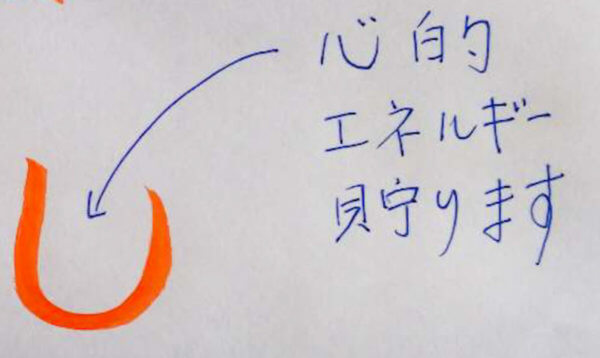 心的
エネルギー
貯ります